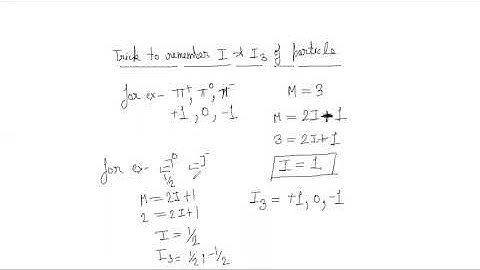 Trick to remember I & I₃ of particle
for ex- π⁺, π⁰, π⁻
+1, 0, -1
M = 3
M = 2I+1
3 = 2I+1
I = 1
I₃ = +1, 0, -1
for ex- Ξ⁰ Ξ⁻
1/2
M = 2I+1
2 = 2I+1
I = 1/2
I₃ = 1/2, -1/2